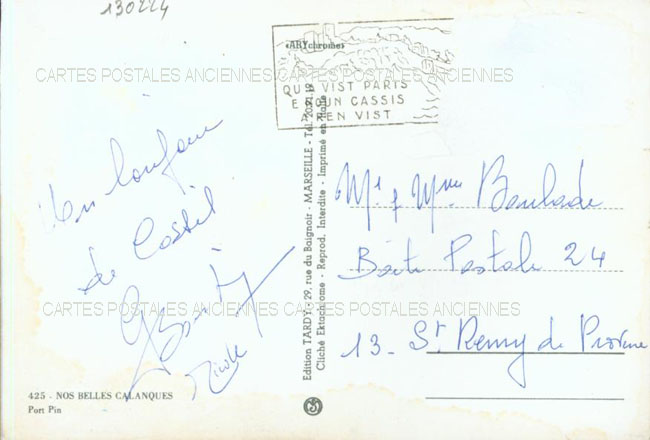 130224
«ARYchrome»
CARTES POSTALES ANCIENNES CARTES POSTALES ANCIENNES CARTES POSTALES ANCIENNES
QU'A VIST PARIS
E NOUN CASSIS
A REN VIST
de Cassis
Nicole
CARTES POSTALES ANCIENNES CARTES POSTALES ANCIENNES CARTES POSTALES ANCIENNES
425 - NOS BELLES CALANQUES
Port Pin
Edition TARDY - 29, rue du Baignoir - MARSEILLE - Tél.
Cliché Ektachrome - Reprod. Interdite - Imprimé en Italie
Mr & Mme
Boite Postale 24
13 - St Remy de Provence